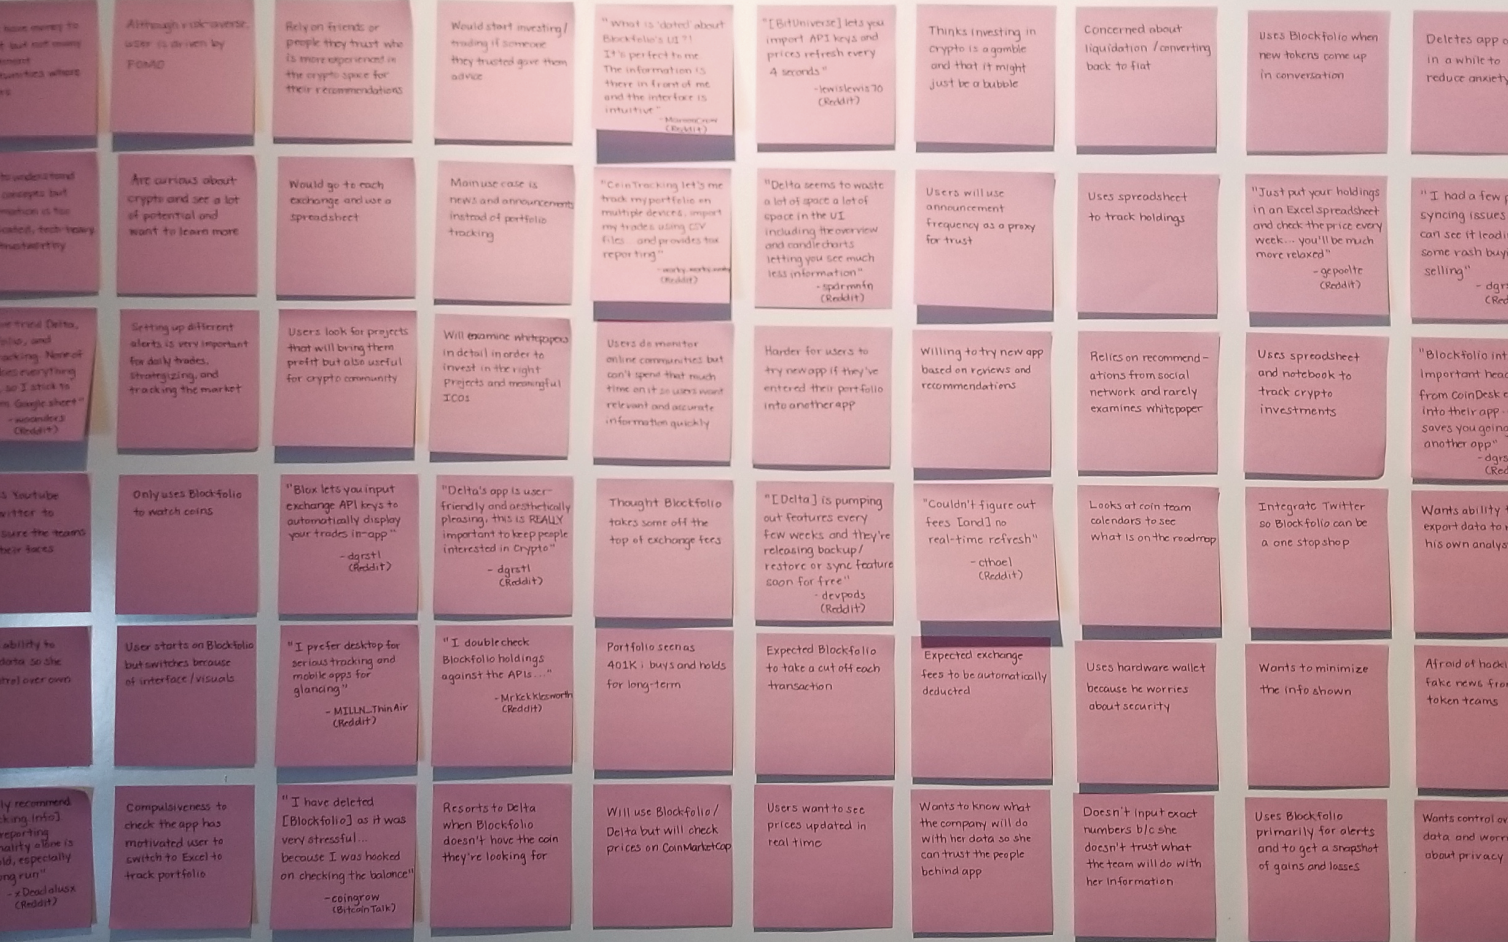 have money to
but not many
Although risk-averse,
user is driven by
FOMO
Rely on friends or
people they trust who
is more experienced in
the crypto space for
their recommendations
Would start investing/
trading if someone
they trusted gave them
advice
"What is 'dated' about
Blockfolio's UI?!
It's perfect to me.
The information is
there in front of me
and the interface is
intuitive"
(Reddit)
"[BitUniverse] lets you
import API keys and
prices refresh every
4 seconds"
-lewislewis70
(Reddit)
Thinks investing in
crypto is a gamble
and that it might
just be a bubble
Concerned about
liquidation /converting
back to fiat
Uses Blockfolio when
new tokens come up
in conversation
Deletes app
in a while to
reduce anxiety
to understand
concepts but
tech-heavy
trustworthy
Are curious about
crypto and see a lot
of potential and
want to learn more
Would go to each
exchange and use a
spreadsheet
Main use case is
news and announcements
instead of portfolio
tracking
"CoinTracking let's me
track my portfolio on
multiple devices, import
my trades using CSV
files... and provides tax
reporting"
(Reddit)
"Delta seems to waste
a lot of space a lot of
space in the UI
including the overview
and candle charts
letting you see much
less information"
-spdrmnfn
(Reddit)
Users will use
announcement
frequency as a proxy
for trust
Uses spreadsheet
to track holdings
"Just put your holdings
in an Excel spreadsheet
and check the price every
week... you'll be much
more relaxed"
- gepoolte
(Reddit)
"I had a few
syncing issues
can see it leadi
some rash buy
selling"
- dgr
(Re
tried Delta,
and
None of
everything
so I stick to
Google sheet"
(Reddit)
Setting up different
alerts is very important
for daily trades,
strategizing, and
tracking the market
Users look for projects
that will bring them
profit but also useful
for crypto community
Will examine whitepapers
in detail in order to
invest in the right
projects and meaningful
ICOs
Users do monitor
online communities but
can't spend that much
time on it so users want
relevant and accurate
information quickly
Harder for users to
try new app if they've
entered their portfolio
into another app
Willing to try new app
based on reviews and
recommendations
Relies on recommend-
ations from social
network and rarely
examines whitepaper
Uses spreadsheet
and notebook to
track crypto
investments
"Blockfolio int
important head
from CoinDesk
into their app -
saves you going
another app"
-dgrs
(Re
Youtube
to
sure the teams
their faces
Only uses Blockfolio
to watch coins
"Blox lets you input
exchange API keys to
automatically display
your trades in-app"
-dgrstl
(Reddit)
"Delta's app is user-
friendly and aesthetically
pleasing, this is REALLY
important to keep people
interested in Crypto"
- dgrstl
(Reddit)
Thought Blockfolio
takes some off the
top of exchange fees
"[Delta] is pumping
out features every
few weeks and they're
releasing backup/
restore or sync feature
soon for free"
- devpods
(Reddit)
"Couldn't figure out
fees [and] no
real-time refresh"
- cthoel
(Reddit)
Looks at coin team
calendars to see
what is on the roadmap
Integrate Twitter
so Blockfolio can be
a one stop shop
Wants ability
export data to
his own analys
ability to
data so she
over own
User starts on Blockfolio
but switches because
of interface/visuals
"I prefer desktop for
serious tracking and
mobile apps for
glancing"
- MILLN_ThinAir
(Reddit)
"I double check
Blockfolio holdings
against the APIs..."
(Reddit)
Portfolio seen as
401K ; buys and holds
for long-term
Expected Blockfolio
to take a cut off each
transaction
Expected exchange
fees to be automatically
deducted
Uses hardware wallet
because he worries
about security
Wants to minimize
the info shown
Afraid of hacki
fake news fro
token teams
ly recommend
king.info]
reporting
alone is
especially
run"
-xDeadalusx
(Reddit)
Compulsiveness to
check the app has
motivated user to
switch to Excel to
track portfolio
"I have deleted
[Blockfolio] as it was
very stressful...
because I was hooked
on checking the balance"
-coingrow
(BitcoinTalk)
Resorts to Delta
when Blockfolio
doesn't have the coin
they're looking for
Will use Blockfolio/
Delta but will check
prices on CoinMarketCap
Users want to see
prices updated in
real time
Wants to know what
the company will do
with her data so she
can trust the people
behind app
Doesn't input exact
numbers b/c she
doesn't trust what
the team will do with
her information
Uses Blockfolio
primarily for alerts
and to get a snapshot
of gains and losses
Wants control ov
data and worri
about privacy